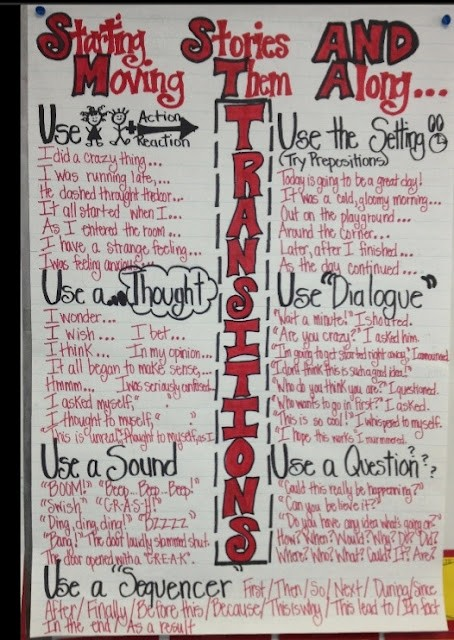 Starting Stories AND
Moving Them Along...
TRANSITIONS
Use Action
Reaction
I did a crazy thing...
I was running late,...
He dashed throught the door...
It all started when I...
As I entered the room...
I have a strange feeling...
I was feeling anxious...
Use a...Thought
I wonder...
I wish... I bet...
I think... In my opinion...
It all began to make sense,...
Hmmm... I was seriously confused...
I asked myself,"
I thought to myself,"
"This is unreal" thought to myself, as I
Use a Sound
"BOOM!" "Beep...Beep...Beep!"
"Swish" "C-R-A-S-H!"
"Ding, ding, ding!" "BZZZZ"
"Bang!" The door loudly slammed shut.
The door opened with a "C-R-E-A-K".
Use the Setting
(Try Prepositions)
Today is going to be a great day!
It was a cold, gloomy morning...
Out on the playground...
Around the corner...
Later, after I finished...
As the day continued...
Use "Dialogue"
"Wait a minute!" I shouted.
"Are you crazy?" I asked him.
"I'm going to get started right away," I announced.
"I don't think this is such a good idea!"
"Who do you think you are?" I questioned.
"Who wants to go in first?" I asked.
"This is so cool!" I whispered to myself.
"I hope this works I murmured.
Use a Question???
"Could this really be happenning?"
"Can you believe it?"
"Do you have any idea what's going on?"
How? When? Would? Why? Do? Did?
Where? Who? What? Could? If? Are?
Use a "Sequencer" First/Then/So/Next/During/Since
After/Finally/Before this/Because/This is why/This lead to/In fact
In the end/As a result